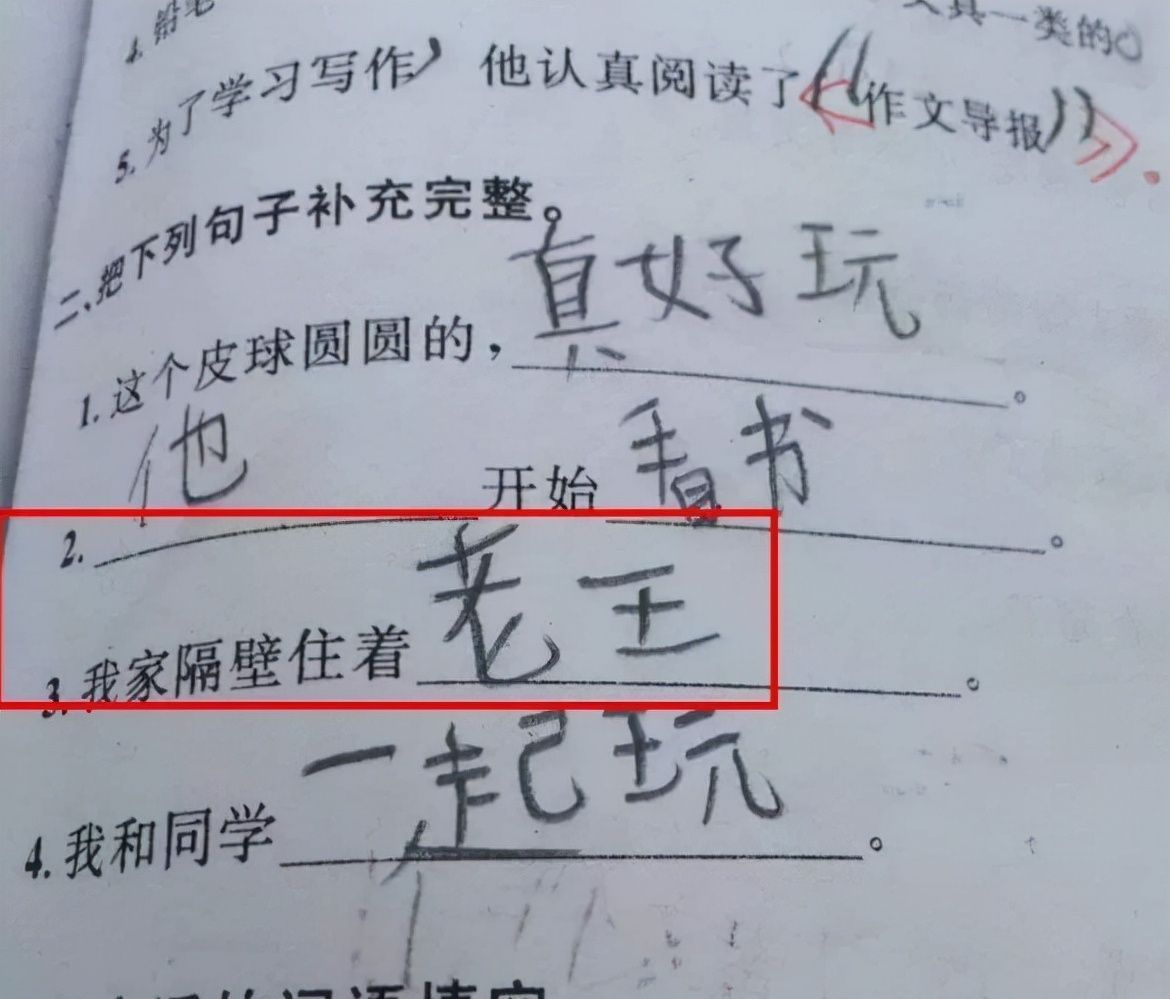 4. 铅笔
一类的。
5. 为了学习写作， 他认真阅读了《作文导报》.
二、把下列句子补充完整。
1. 这个皮球圆圆的，真好玩。
2. 他开始看书。
3. 我家隔壁住着老王。
4. 我和同学一起玩。